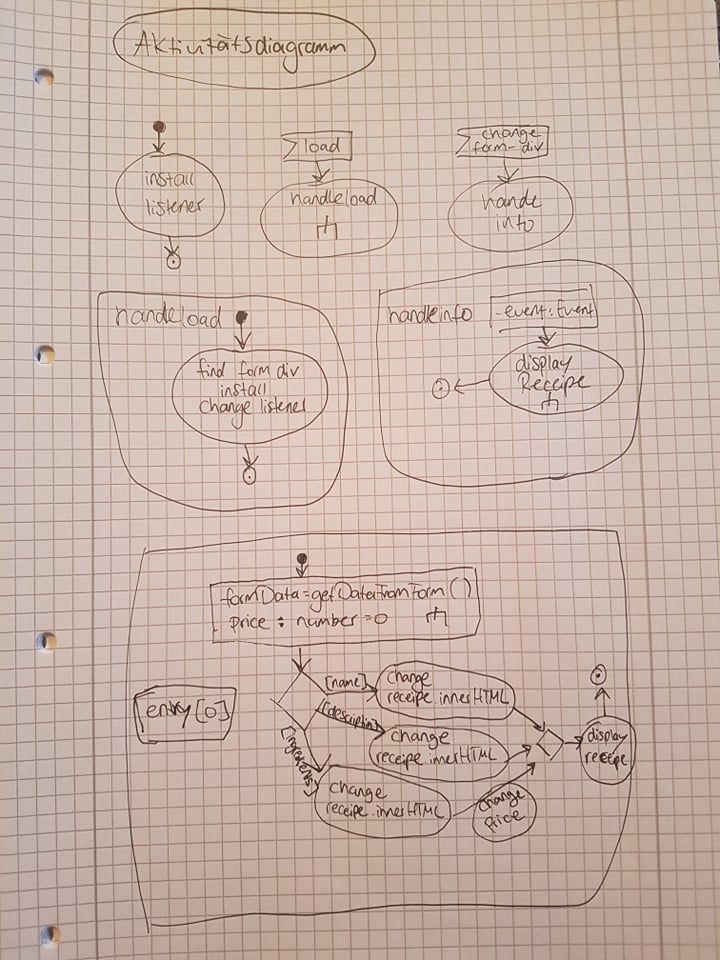 Aktivitätsdiagramm
install
listener
load
handleload
change
form-div
hande
into
handeload
find form div
install
change listener
handleinfo
-event:Event
display
Receipe
formData=getDataFromForm()
price : number =0
entry[0]
[name]
change
receipe.innerHTML
[descriptin]
change
receipe.innerHTML
[ingredients]
change
receipe.innerHTML
change
price
display
receipe